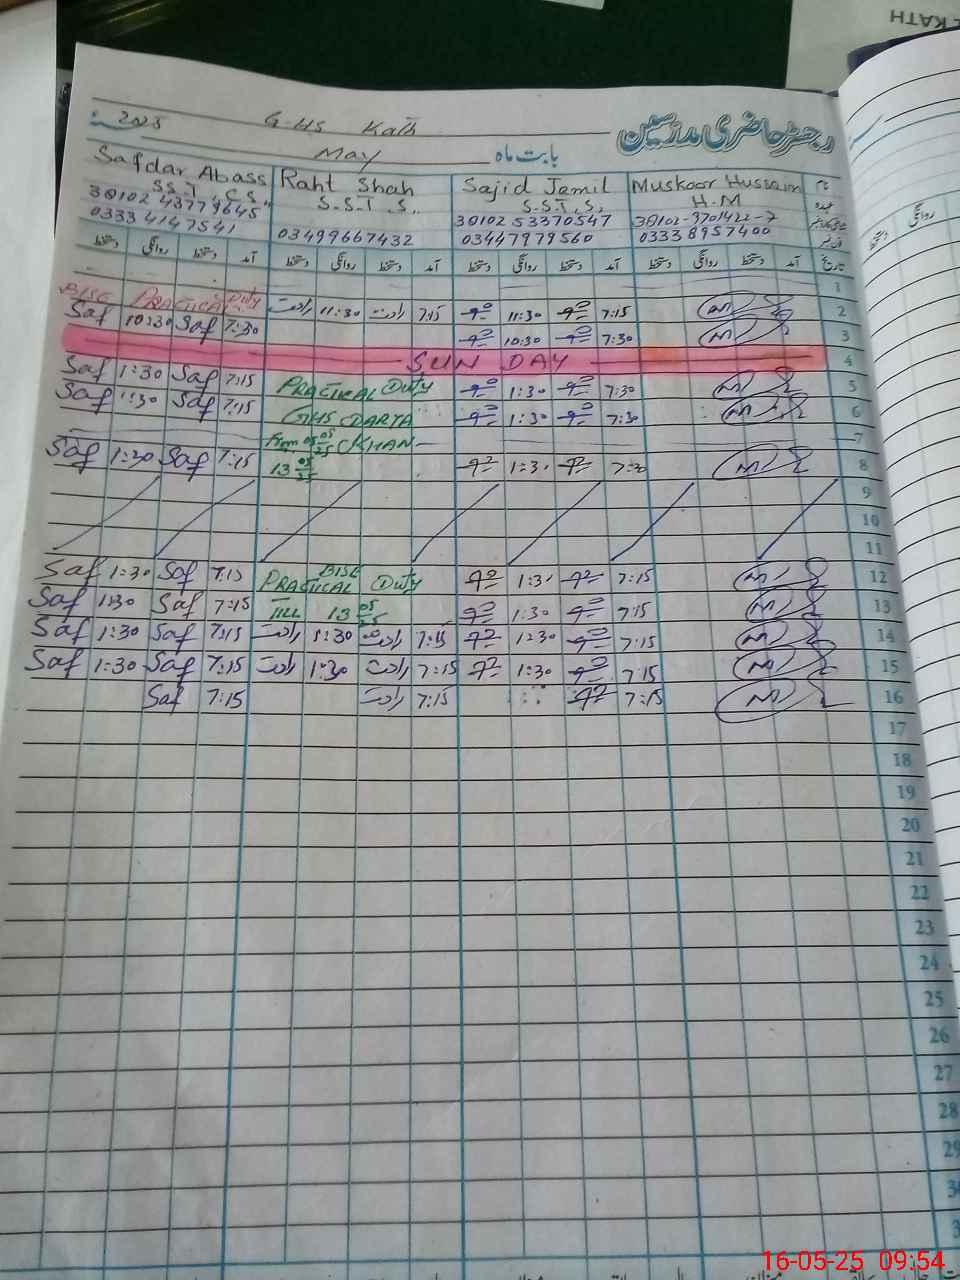 KATH
2025 G-HS Kath رجسٹر حاضری مدرسین
May بابت ماہ
Safdar Abass Raht Shah Sajid Jemil Muskoor Hussain نام
S.S.T C.S. S.S.T .S.. S.S.T.S. H.M عہدہ
38102 43779645 38102 53370547 38102-3701422-7
0333 4147541 03499667432 03447979560 0333 8957400
دستخط روانگی دستخط آمد دستخط روانگی دستخط آمد دستخط روانگی دستخط آمد دستخط روانگی دستخط آمد تاریخ
1
BISE PRACTICAL Duty راحت 11:30 راحت 7:15 11:30 7:15 2
Saf 10:30 Saf 7:30 10:30 7:30 3
SUN DAY 4
Saf 1:30 Saf 7:15 PRACTICAL Duty 1:30 7:30 5
Saf 1:30 Saf 7:15 GHS DARYA 1:30 7:30 6
From 05 05/25 KHAN 7
Saf 1:30 Saf 7:15 13 05/25 1:30 7:30 8
9
10
11
Saf 1:30 Saf 7:15 BISE PRACTICAL Duty 1:31 7:15 12
Saf 1:30 Saf 7:15 TILL 13 05/25 1:30 7:15 13
Saf 1:30 Saf 7:15 راحت 1:30 راحت 7:15 1:30 7:15 14
Saf 1:30 Saf 7:15 راحت 1:30 راحت 7:15 1:30 7:15 15
Saf 7:15 راحت 7:15 7:15 16
17
18
19
20
21
22
23
24
25
26
27
28
29
16-05-25 09:54